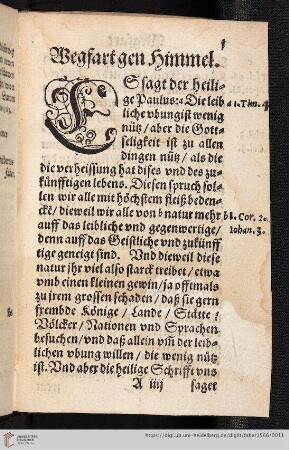 Wegfart gen Himmel.
ES sagt der heili-
ge Paulus: Die leib
liche vbung ist wenig
nütz / aber die Gott-
seligkeit ist zu allen
dingen nütz / als die
die verheissung hat dises vnd des zu-
künfftigen lebens. Diesen spruch sol-
len wir alle mit höchstem fleiß beden-
cke / dieweil wir alle von b natur mehr
auff das leibliche vnd gegenwertige /
denn auff das Geistliche vnd zukünff
tige geneigt sind. Vnd dieweil diese
natur jhr viel also starck treibet / etwa
vmb einen kleinen gewin / ja offtmals
zu jrem grossen schaden / daß sie gern
frembde Könige / Lande / Stätte /
Völcker / Nationen vnd Sprachen
besuchen / vnd daß allein vm̃ der leib-
lichen vbung willen / die wenig nütz
ist. Vnd aber die heilige Schrifft vns
A iiij saget
a 1. Tim. 4
b 1. Cor. 2.
Iohan. 3.